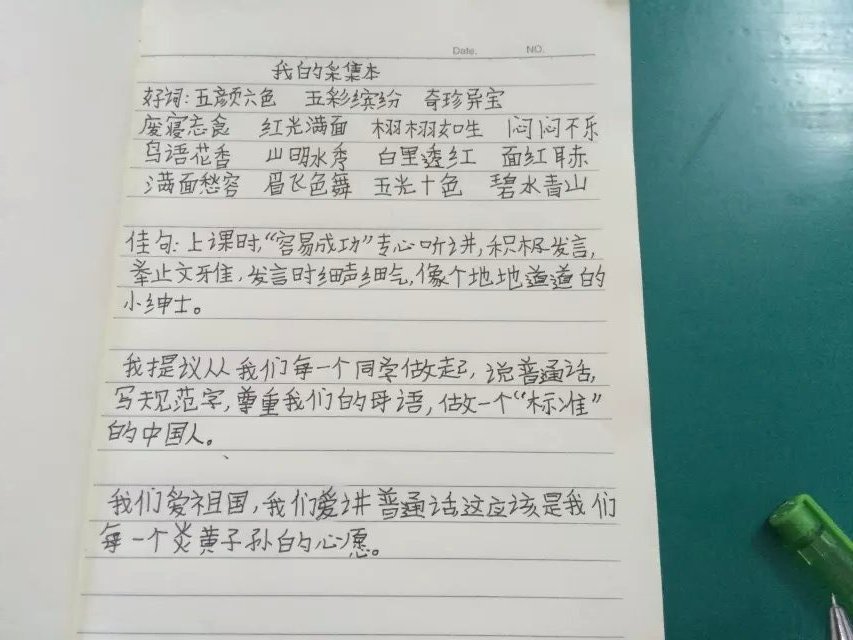 Date. NO.
我的采集本
好词:五颜六色 五彩缤纷 奇珍异宝
废寝忘食 红光满面 栩栩如生 闷闷不乐
鸟语花香 山明水秀 白里透红 面红耳赤
满面愁容 眉飞色舞 五光十色 碧水青山
佳句:上课时,“容易成功”专心听讲,积极发言,
举止文雅,发言时细声细气,像个地地道道的
小绅士。
我提议从我们每一个同学做起,说普通话,
写规范字,尊重我们的母语,做一个“标准”
的中国人。
我们爱祖国,我们爱讲普通话这应该是我们
每一个炎黄子孙的心愿。